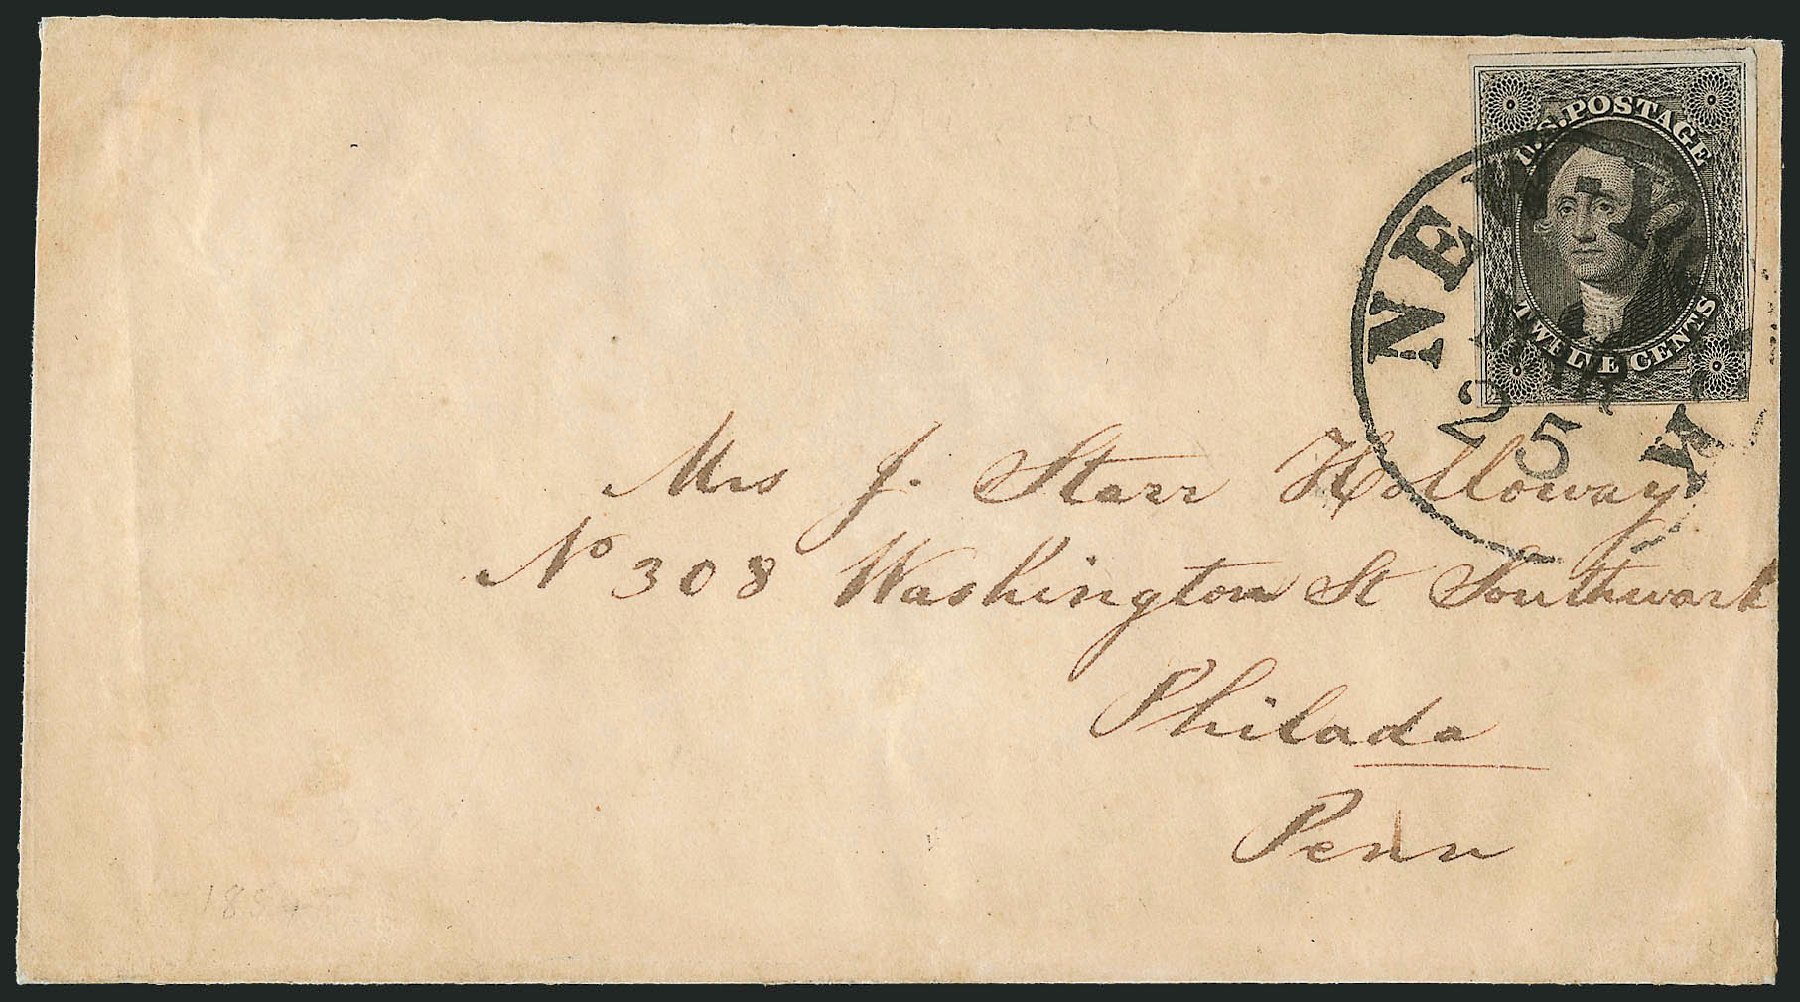 U.S. POSTAGE
TWELVE CENTS
NEW-Y
25
Mrs J. Starr Holloway
No 308 Washington St Southwark
Philada
Penn